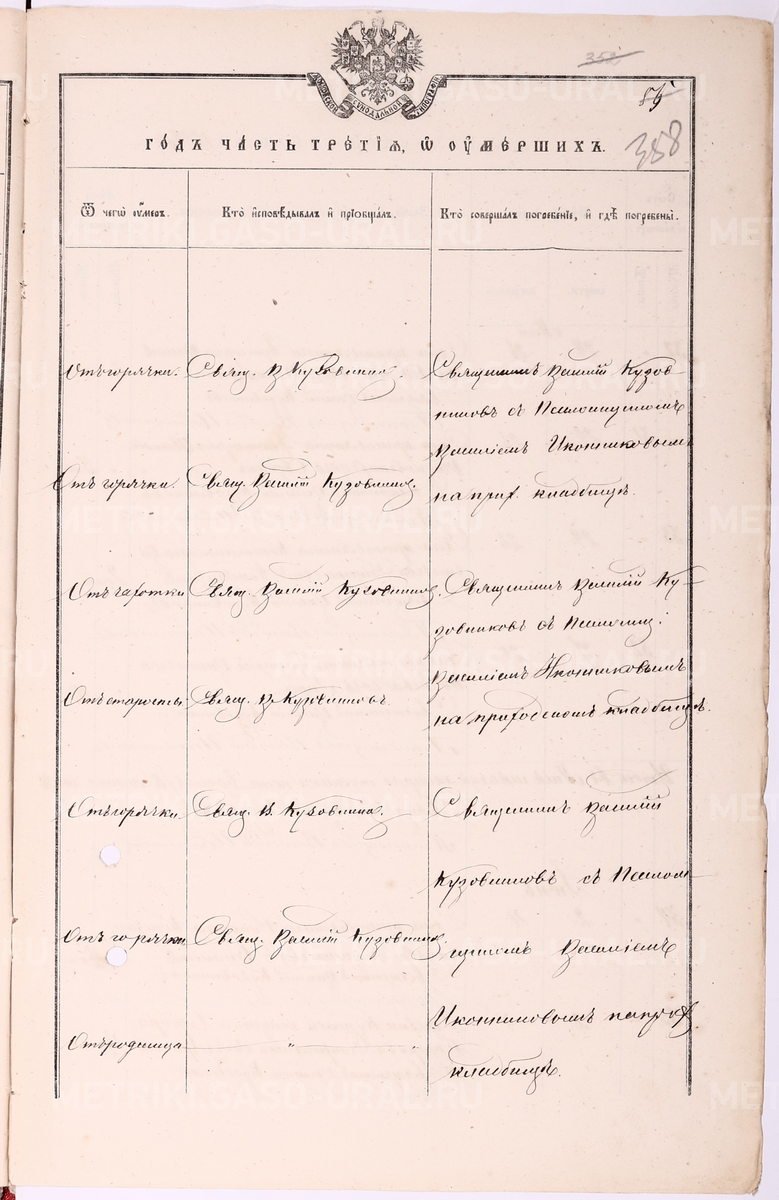 353
МОСКОВСКОЙ СѴНОДАЛЬНОЙ ТИПОГРАФІИ
55
358
ГО́ДЪ ЧА́СТЬ ТРЕ́ТІѦ, Ѡ ОУ҆МЕ́РШИХЪ.
Ѿ чегѡ̀ оу҆́меръ.
Кто̀ и҆сповѣ́дывалъ и҆ прїѡбща́лъ.
Кто̀ соверша́лъ погребе́нїе, и҆ гдѣ̀ погребены̀.
Отъ горячки.
Свящ. В Кузовников.
Священникъ Василій Кузов-
никовъ съ Псаломщикомъ
Василіемъ Иконниковымъ
на прих. кладбищѣ.
Отъ горячки.
Свящ. Василій Кузовников.
Отъ чахотки
Свящ. Василій Кузовников.
Священникъ Василій Ку-
зовниковъ съ Псаломщ:
Василіемъ Иконниковымъ
на приходскомъ кладбищѣ.
Отъ старости.
Свящ. В. Кузовниковъ.
Отъ горячки.
Свящ. В. Кузовников.
Священникъ Василій
Кузовниковъ съ Псалом-
щикомъ Василіемъ
Иконниковымъ на прих.
кладбищѣ.
Отъ горячки
Свящ. Василій Кузовников.
Отъ родимца
METRIKI.GASO-URAL.RU